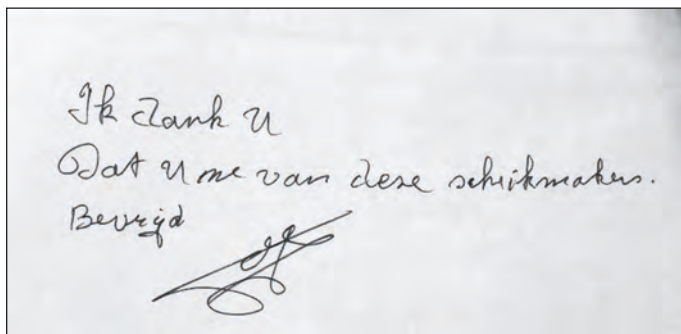 Ik dank U
Dat U me van deze schrikmakers.
Bevrijd